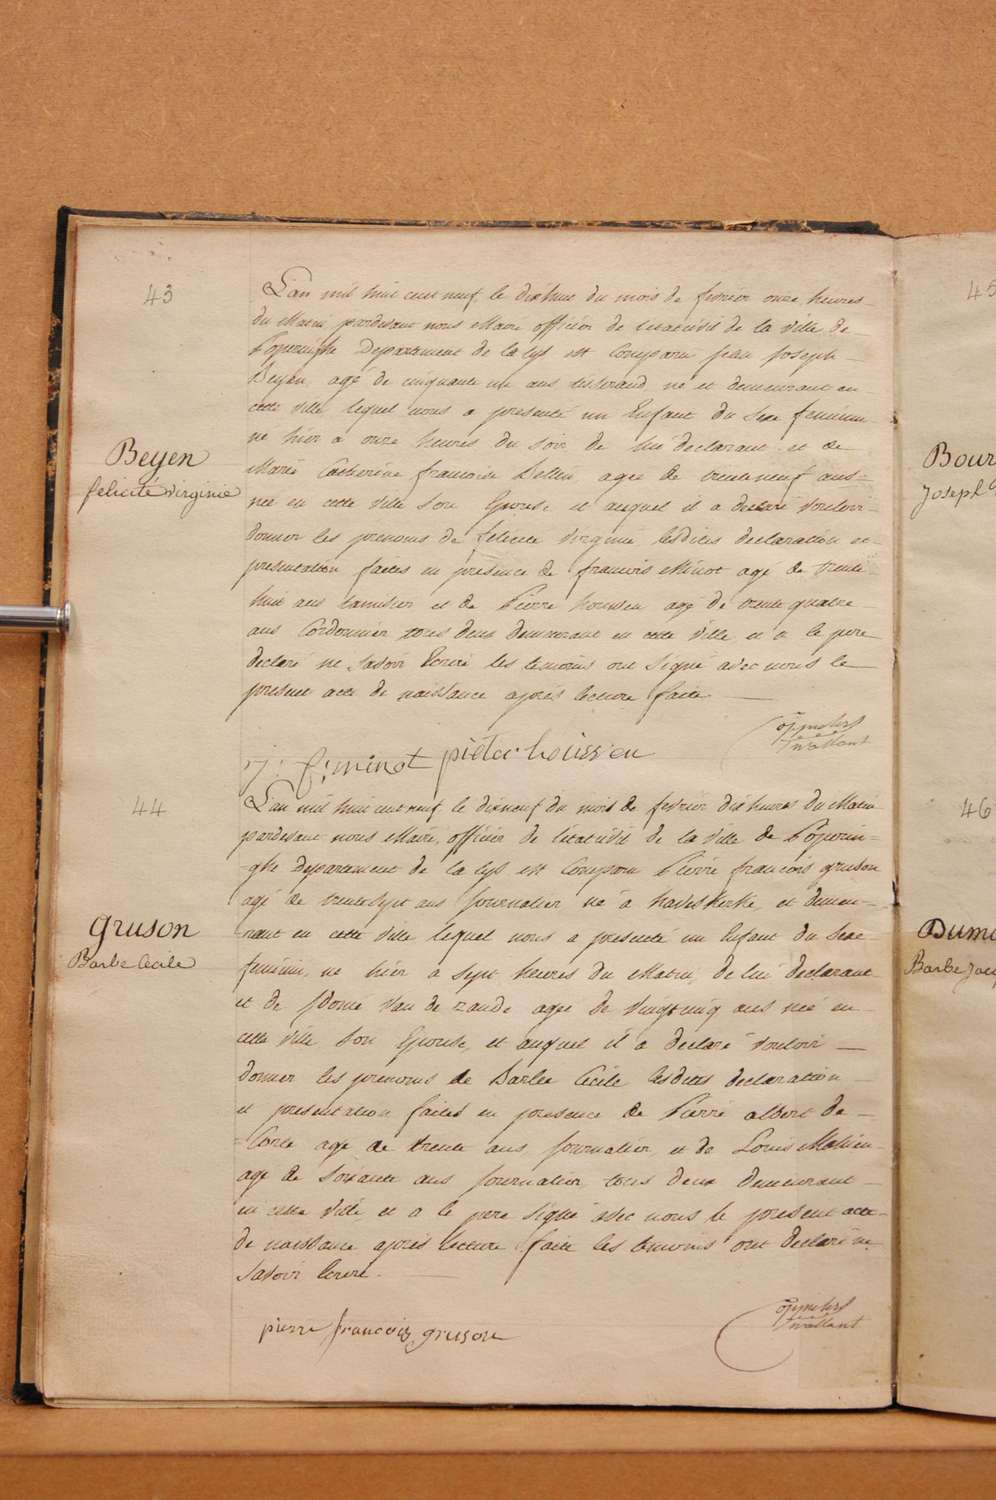 43
L'an mil huit cent neuf le dixhuit du mois de fevrier onze heures
du Matin pardevant nous Maire officier de l'etat civil de la ville de
Poperinghe Departement de la lys est Comparu jean joseph
Beyen agé de cinquante un ans tisserand né et demeurant en
cette ville lequel nous a presenté un Enfant du sexe feminin
né hier a onze heures du soir de lui declarant et de
Marie Catherine francoise agee de trenteneuf ans
née en cette ville son Epouse et auquel il a declaré vouloir
donner les prenoms de felicité Virginie lesdites declaration et
presentation faites en presence de francois Minot agé de trente
huit ans et de Pierre houssen agé de trente quatre
ans Cordonnier tous deux demeurant en cette ville et a le pere
declaré ne savoir Ecrire les temoins ont signé avec nous le
present acte de naissance après lecture faite
Beyen
felicité Virginie
f: minot pieter houssen
44
L'an mil huit cent neuf le dixneuf du mois de fevrier dix heures du Matin
pardevant nous Maire, officier de l'etat civil de la ville de Poperin-
-ghe Departement de la lys est Comparu Pierre francois gruson
agé de trentesept ans journalier né à haveskerke et demeu-
rant en cette ville lequel nous a presenté un Enfant du sexe
feminin, né hier a sept heures du Matin, de lui declarant
et de van de zande agée de vingtcinq ans née en
cette ville son Epouse, et auquel il a declaré vouloir
donner les prenoms de Barbe Cecile lesdites declaration
et presentation faites en presence de Pierre albert de
agé de trente ans journalier et de Louis
agé de soixante ans journalier tous deux demeurant
en cette ville et a le pere signé avec nous le present acte
de naissance après lecture faite les temoins ont declaré ne
savoir Ecrire.
gruson
Barbe Cecile
pierre francois gruson
45
Bour
Joseph
46
Dumo
Barbe Jac